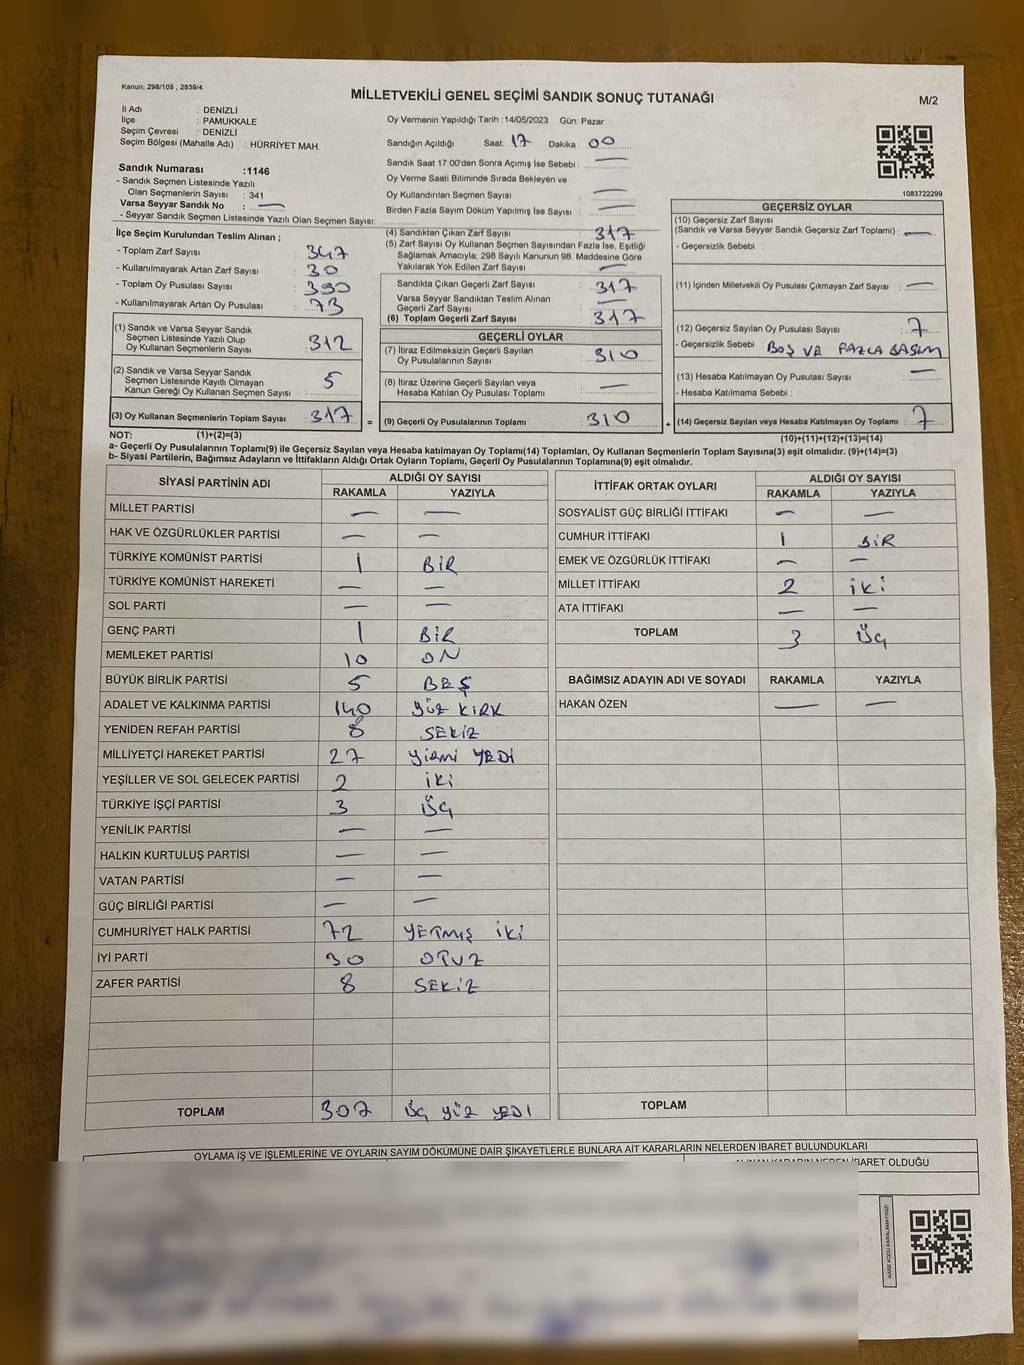 Kanun: 298/105 , 2839/4
MİLLETVEKİLİ GENEL SEÇİMİ SANDIK SONUÇ TUTANAĞI
M/2
İl Adı : DENİZLİ
İlçe : PAMUKKALE
Seçim Çevresi : DENİZLİ
Seçim Bölgesi (Mahalle Adı) : HÜRRİYET MAH.
Oy Vermenin Yapıldığı Tarih : 14/05/2023 Gün: Pazar
Sandığın Açıldığı Saat: 17 Dakika : 00
Sandık Saat 17:00'den Sonra Açımış İse Sebebi : —
Oy Verme Saati Bitiminde Sırada Bekleyen ve
Oy Kullandırılan Seçmen Sayısı : —
Birden Fazla Sayım Döküm Yapılmış İse Sayısı : —
1083722299
Sandık Numarası :1146
- Sandık Seçmen Listesinde Yazılı
Olan Seçmenlerin Sayısı : 341
Varsa Seyyar Sandık No : —
- Seyyar Sandık Seçmen Listesinde Yazılı Olan Seçmen Sayısı:
İlçe Seçim Kurulundan Teslim Alınan ;
- Toplam Zarf Sayısı : 347
- Kullanılmayarak Artan Zarf Sayısı : 30
- Toplam Oy Pusulası Sayısı : 390
- Kullanılmayarak Artan Oy Pusulası : 73
(1) Sandık ve Varsa Seyyar Sandık
Seçmen Listesinde Yazılı Olup
Oy Kullanan Seçmenlerin Sayısı : 312
(2) Sandık ve Varsa Seyyar Sandık
Seçmen Listesinde Kayıtlı Olmayan
Kanun Gereği Oy Kullanan Seçmen Sayısı : 5
(3) Oy Kullanan Seçmenlerin Toplam Sayısı : 317 =
(4) Sandıktan Çıkan Zarf Sayısı : 317
(5) Zarf Sayısı Oy Kullanan Seçmen Sayısından Fazla İse, Eşitliği
Sağlamak Amacıyla; 298 Sayılı Kanunun 98. Maddesine Göre
Yakılarak Yok Edilen Zarf Sayısı : —
Sandıkta Çıkan Geçerli Zarf Sayısı : 317
Varsa Seyyar Sandıktan Teslim Alınan
Geçerli Zarf Sayısı : —
(6) Toplam Geçerli Zarf Sayısı : 317
GEÇERLİ OYLAR
(7) İtiraz Edilmeksizin Geçerli Sayılan
Oy Pusulalarının Sayısı : 310
(8) İtiraz Üzerine Geçerli Sayılan veya
Hesaba Katılan Oy Pusulası Toplamı : —
(9) Geçerli Oy Pusulalarının Toplamı : 310 +
GEÇERSİZ OYLAR
(10) Geçersiz Zarf Sayısı
(Sandık ve Varsa Seyyar Sandık Geçersiz Zarf Toplamı) : —
- Geçersizlik Sebebi :
(11) İçinden Milletvekili Oy Pusulası Çıkmayan Zarf Sayısı : —
(12) Geçersiz Sayılan Oy Pusulası Sayısı : 7
- Geçersizlik Sebebi : BOŞ VE FAZLA BASIM
(13) Hesaba Katılmayan Oy Pusulası Sayısı : —
- Hesaba Katılmama Sebebi :
(14) Geçersiz Sayılan veya Hesaba Katılmayan Oy Toplamı : 7
NOT: (1)+(2)=(3)
(10)+(11)+(12)+(13)=(14)
a- Geçerli Oy Pusulalarının Toplamı(9) ile Geçersiz Sayılan veya Hesaba katılmayan Oy Toplamı(14) Toplamları, Oy Kullanan Seçmenlerin Toplam Sayısına(3) eşit olmalıdır. (9)+(14)=(3)
b- Siyasi Partilerin, Bağımsız Adayların ve İttifakların Aldığı Ortak Oyların Toplamı, Geçerli Oy Pusulalarının Toplamına(9) eşit olmalıdır.
SİYASİ PARTİNİN ADI ALDIĞI OY SAYISI
RAKAMLA YAZIYLA
MİLLET PARTİSİ — —
HAK VE ÖZGÜRLÜKLER PARTİSİ — —
TÜRKİYE KOMÜNİST PARTİSİ 1 BİR
TÜRKİYE KOMÜNİST HAREKETİ — —
SOL PARTİ — —
GENÇ PARTİ 1 BİR
MEMLEKET PARTİSİ 10 ON
BÜYÜK BİRLİK PARTİSİ 5 BEŞ
ADALET VE KALKINMA PARTİSİ 140 YÜZ KIRK
YENİDEN REFAH PARTİSİ 8 SEKİZ
MİLLİYETÇİ HAREKET PARTİSİ 27 YİRMİ YEDİ
YEŞİLLER VE SOL GELECEK PARTİSİ 2 İKİ
TÜRKİYE İŞÇİ PARTİSİ 3 ÜÇ
YENİLİK PARTİSİ — —
HALKIN KURTULUŞ PARTİSİ — —
VATAN PARTİSİ — —
GÜÇ BİRLİĞİ PARTİSİ — —
CUMHURİYET HALK PARTİSİ 72 YETMİŞ İKİ
İYİ PARTİ 30 OTUZ
ZAFER PARTİSİ 8 SEKİZ
TOPLAM 307 ÜÇ YÜZ YEDİ
İTTİFAK ORTAK OYLARI ALDIĞI OY SAYISI
RAKAMLA YAZIYLA
SOSYALİST GÜÇ BİRLİĞİ İTTİFAKI — —
CUMHUR İTTİFAKI 1 BİR
EMEK VE ÖZGÜRLÜK İTTİFAKI — —
MİLLET İTTİFAKI 2 İKİ
ATA İTTİFAKI — —
TOPLAM 3 ÜÇ
BAĞIMSIZ ADAYIN ADI VE SOYADI RAKAMLA YAZIYLA
HAKAN ÖZEN — —
TOPLAM
OYLAMA İŞ VE İŞLEMLERİNE VE OYLARIN SAYIM DÖKÜMÜNE DAİR ŞİKAYETLERLE BUNLARA AİT KARARLARIN NELERDEN İBARET BULUNDUKLARI
ALINAN KARARIN NEDEN İBARET OLDUĞU
KARE KODU KARALAMAYINIZ!